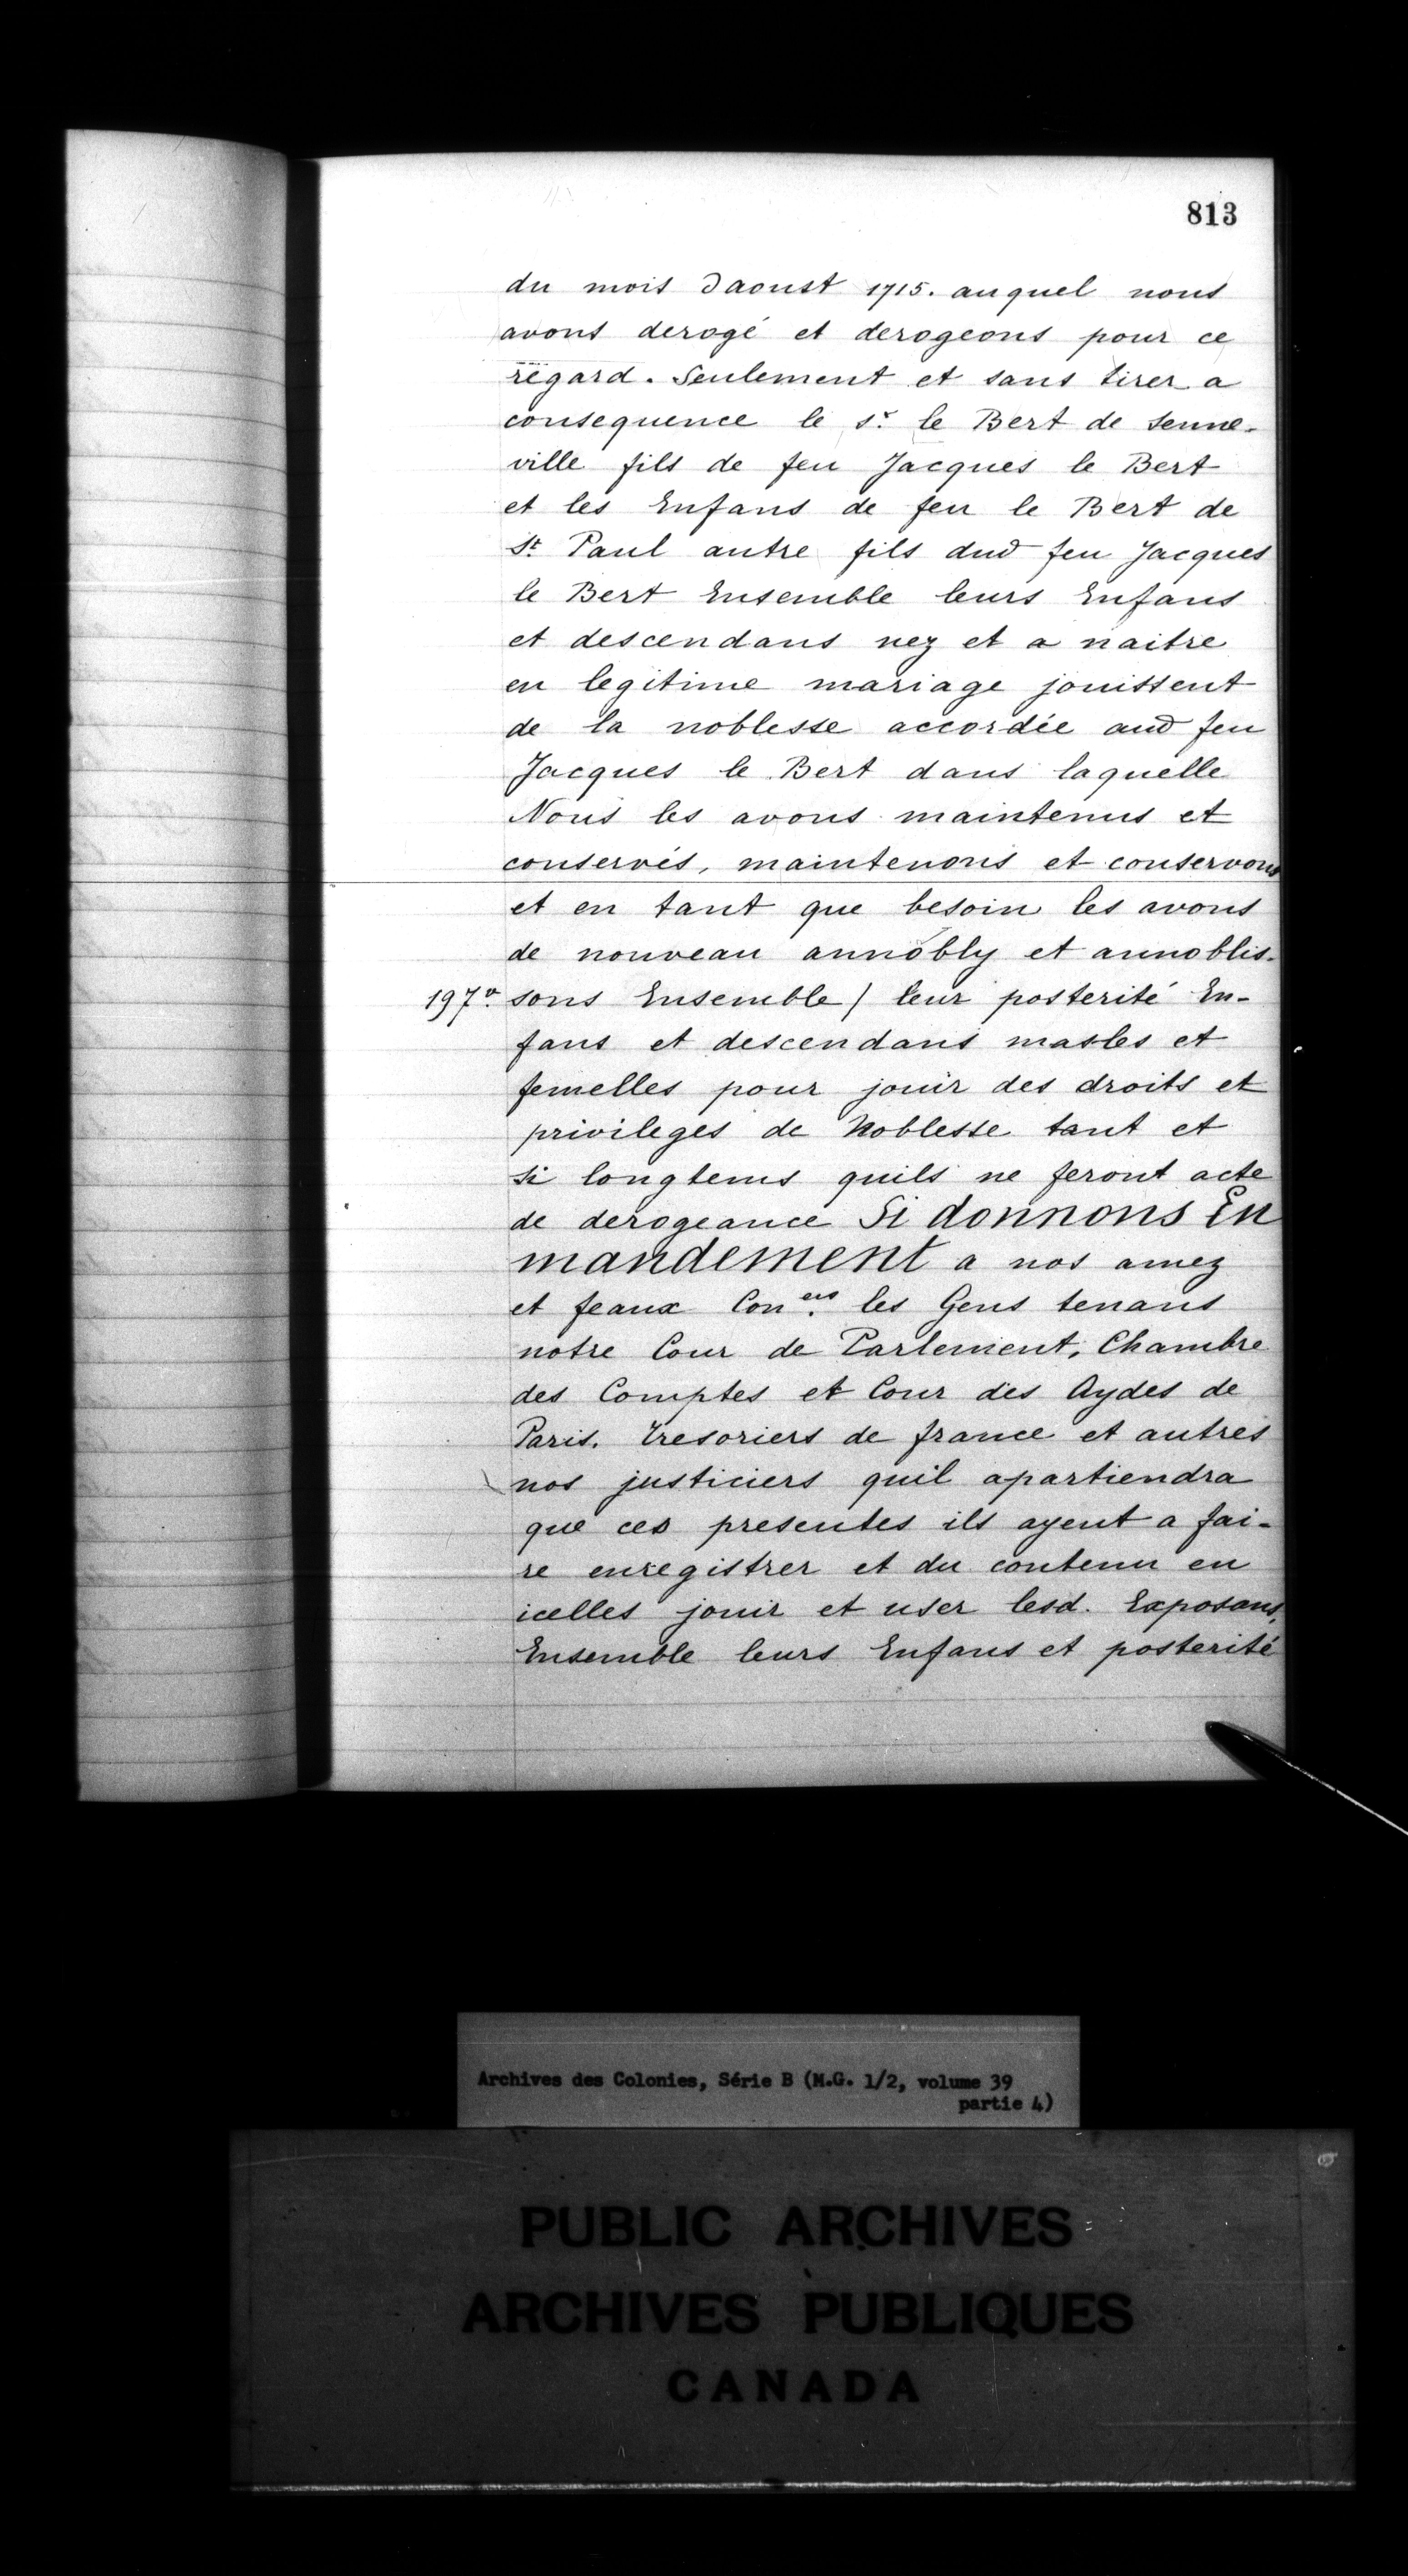 813
du mois daoust 1715. auquel nous
avons derogé et derogeons pour ce
regard. Seulement et sans tirer a
consequence le sr. le Bert de senne-
ville fils de feu Jacques le Bert
et les Enfans de feu le Bert de
st. Paul autre fils dud feu Jacques
le Bert Ensemble leurs Enfans
et descendans nez et a naitre
en legitime mariage jouissent
de la noblesse accordée aud feu
Jacques le Bert dans laquelle
Nous les avons maintenus et
conservés, maintenons et conservons
et en tant que besoin les avons
de nouveau annobly et annoblis-
197vo. sons Ensemble / leur posterité En-
fans et descendans masles et
femelles pour jouir des droits et
privileges de Noblesse tant et
si longtems quils ne feront acte
de derogeance Si donnons En
mandement a nos amez
et feaux Coners. les Gens tenans
notre Cour de Parlement, Chambre
des Comptes et Cour des Aydes de
Paris. Tresoriers de france et autres
nos justiciers quil apartiendra
que ces presentes ils ayent a fai-
re enregistrer et du contenu en
icelles jouir et user lesd. Exposans,
Ensemble leurs Enfans et posterité
Archives des Colonies, Série B (M.G. 1/2, volume 39
partie 4)
PUBLIC ARCHIVES
ARCHIVES PUBLIQUES
CANADA